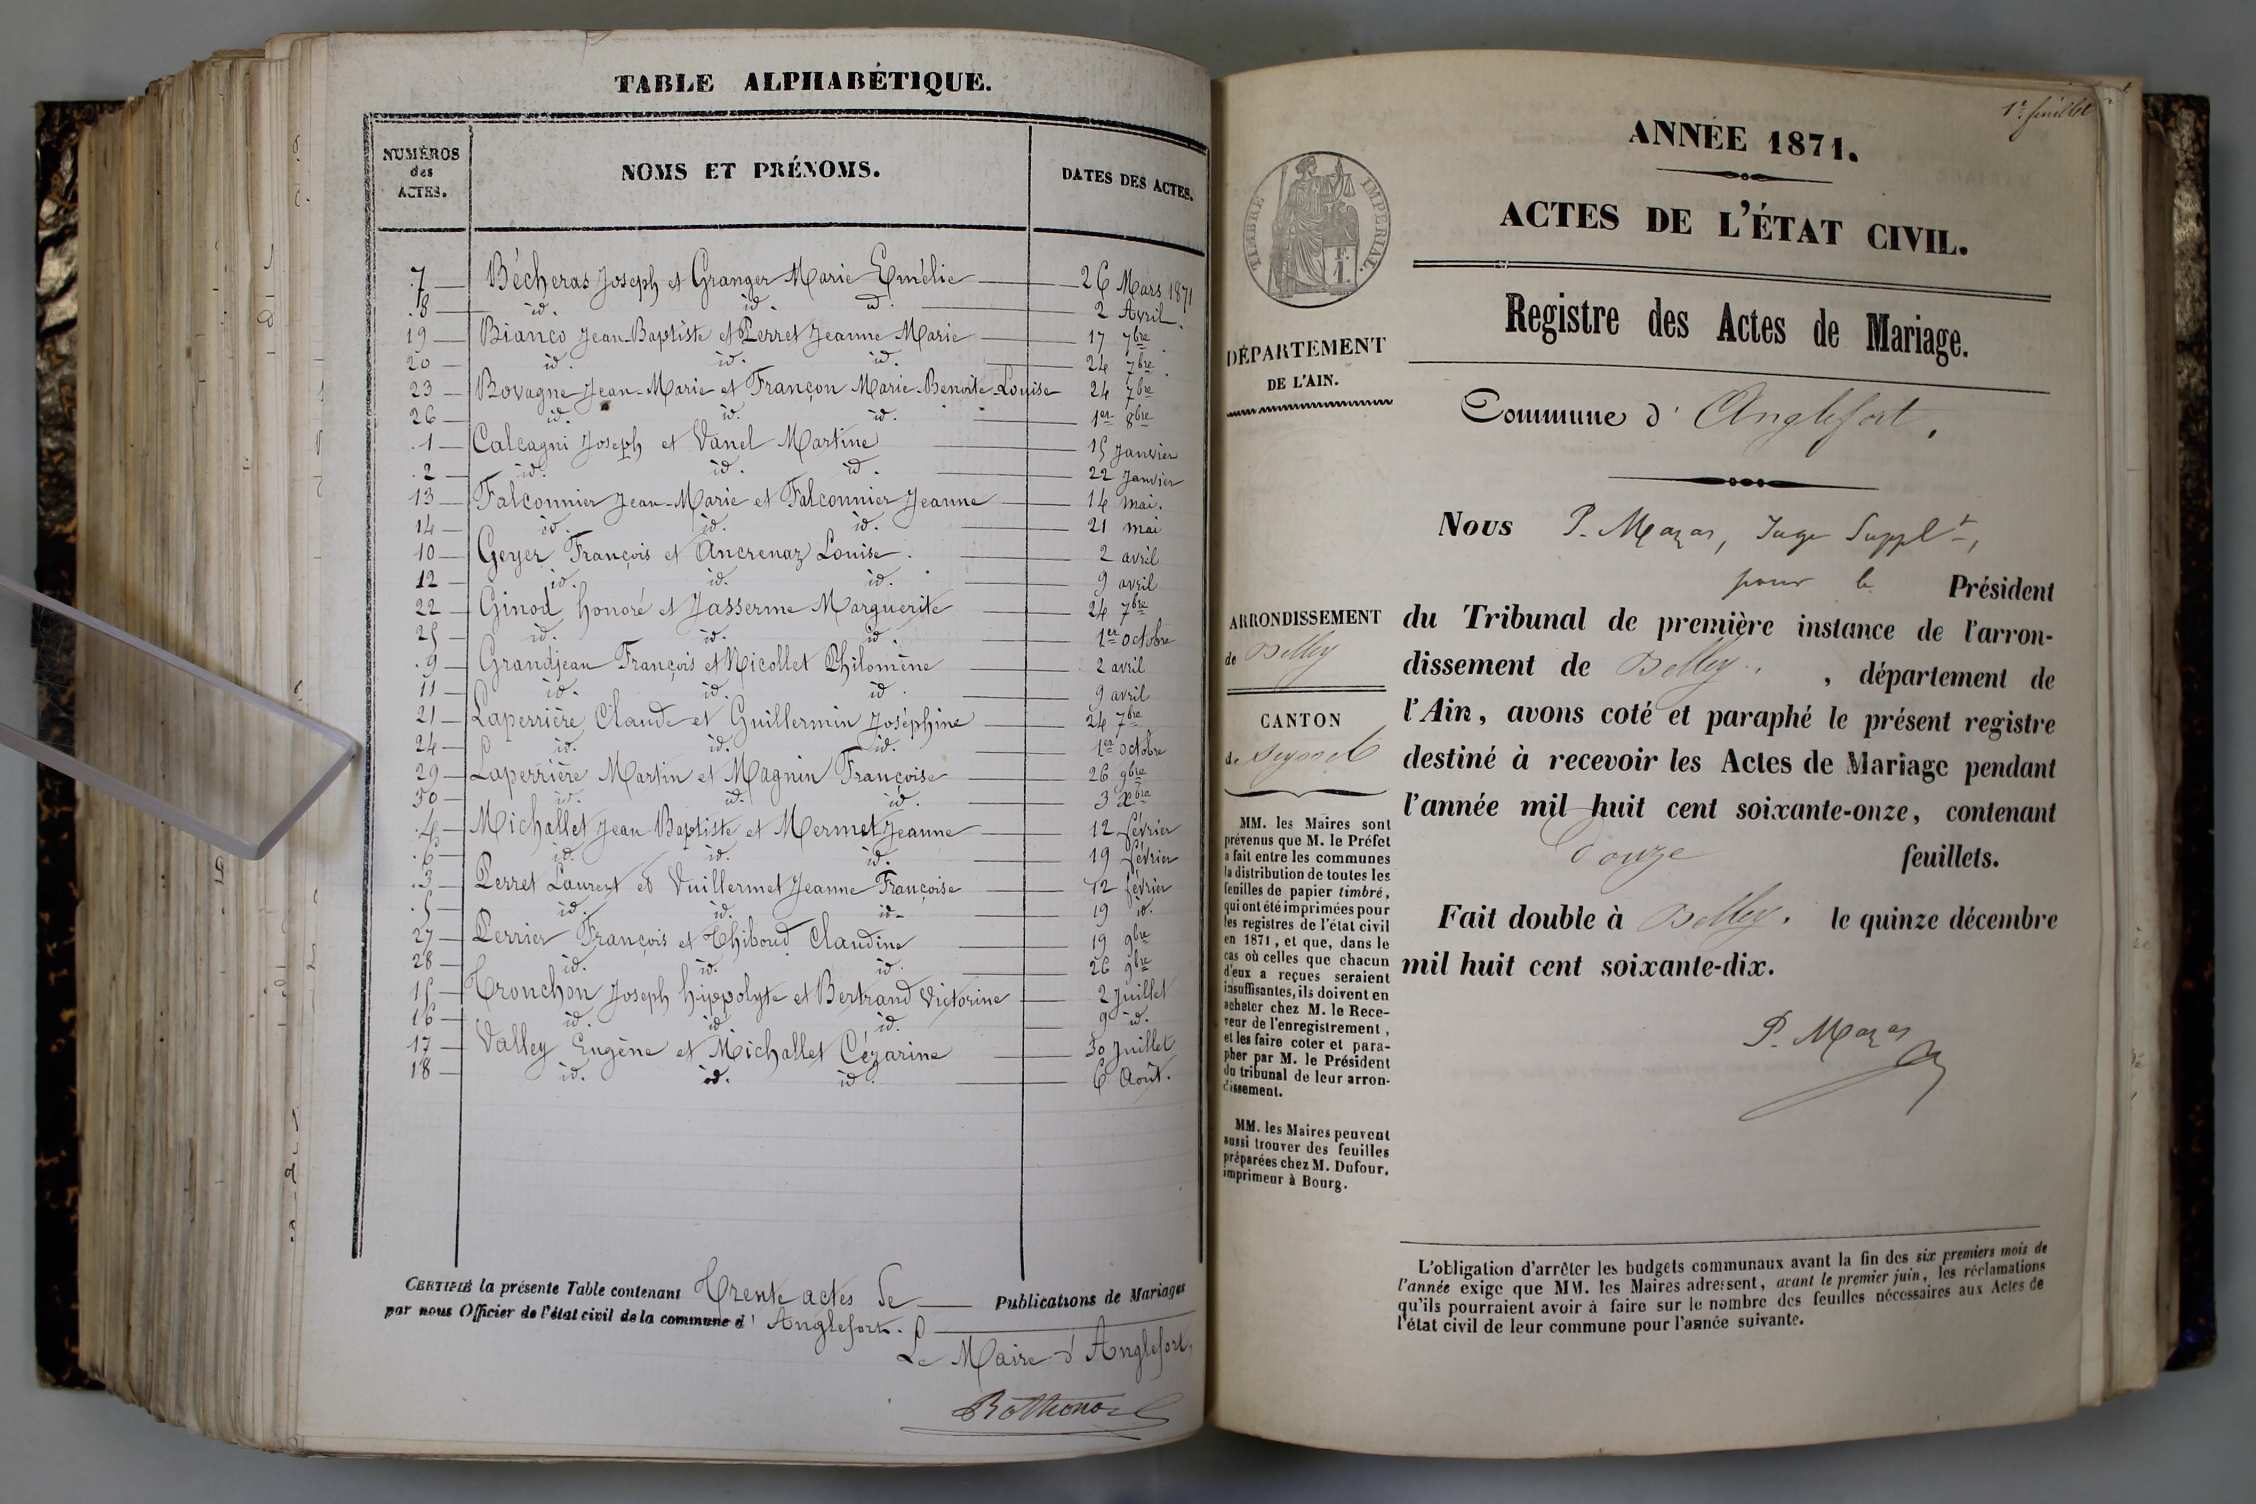 TABLE ALPHABÉTIQUE.
NUMÉROS des ACTES. NOMS ET PRÉNOMS. DATES DES ACTES.
7 Bécheras Joseph et Granger Marie Emélie 26 Mars 1871
8 id. id. id. 2 Avril.
19 Bianco Jean-Baptiste et Perret Jeanne Marie 17 7bre
20 id. id. id. 24 7bre
23 Bovagne Jean-Marie et Françon Marie-Benoite-Louise 24 7bre
26 id. id. id. 1er 8bre
1 Calcagni Joseph et Vanel Martine 15 Janvier
2 id. id. id. 22 Janvier
13 Falconnier Jean-Marie et Falconnier Jeanne 14 mai.
14 id. id. id. 21 mai
10 Geyer François et Ancrenaz Louise. 2 avril
12 id. id. id. 9 avril
22 Ginod honoré et Jasserme Marguerite 24 7bre
25 id. id. id 1er octobre
9 Grandjean François et Nicollet Philomène 2 avril
11 id. id. id. 9 avril
21 Laperrière Claude et Guillermin Joséphine 24 7bre
24 id. id. id. 1er octobre
29 Laperrière Martin et Magnin Françoise 26 9bre
30 id. id. id. 3 Xbre
4 Michallet Jean Baptiste et Mermet Jeanne 12 février
6 id. id. id. 19 février
3 Perret Laurent et Vuillermet Jeanne Françoise 12 février
5 id. id. id. 19 id.
27 Perrier François et Thiboud Claudine 19 9bre
28 id. id. id. 26 9bre
15 Tronchon Joseph hippolyte et Bertrand Victorine 2 Juillet
16 id. id. id. 9 id.
17 Valley Eugène et Michallet Cézarine 30 Juillet
18 id. id. id. 6 Août.
CERTIFIÉ la présente Table contenant Trente actes de Publications de Mariages
par nous Officier de l'état civil de la commune d' Anglefort.
Le Maire d'Anglefort,
1er feuillet
ANNÉE 1871.
ACTES DE L'ÉTAT CIVIL.
TIMBRE IMPÉRIAL.
Registre des Actes de Mariage.
DÉPARTEMENT
DE L'AIN.
Commune d' Anglefort,
Nous P. Mazas, Juge Supplt,
pour le Président
ARRONDISSEMENT
de Belley
du Tribunal de première instance de l'arron-
dissement de Belley, département de
l'Ain, avons coté et paraphé le présent registre
destiné à recevoir les Actes de Mariage pendant
l'année mil huit cent soixante-onze, contenant
Douze feuillets.
Fait double à Belley. le quinze décembre
mil huit cent soixante-dix.
P. Mazas
CANTON
de Seyssel
MM. les Maires sont
prévenus que M. le Préfet
a fait entre les communes
la distribution de toutes les
feuilles de papier timbré,
qui ont été imprimées pour
les registres de l'état civil
en 1871, et que, dans le
cas où celles que chacun
d'eux a reçues seraient
insuffisantes, ils doivent en
acheter chez M. le Rece-
veur de l'enregistrement,
et les faire coter et para-
pher par M. le Président
du tribunal de leur arron-
dissement.
MM. les Maires peuvent
aussi trouver des feuilles
préparées chez M. Dufour,
imprimeur à Bourg.
L'obligation d'arrêter les budgets communaux avant la fin des six premiers mois de
l'année exige que MM. les Maires adressent, avant le premier juin, les réclamations
qu'ils pourraient avoir à faire sur le nombre des feuilles nécessaires aux Actes de
l'état civil de leur commune pour l'année suivante.